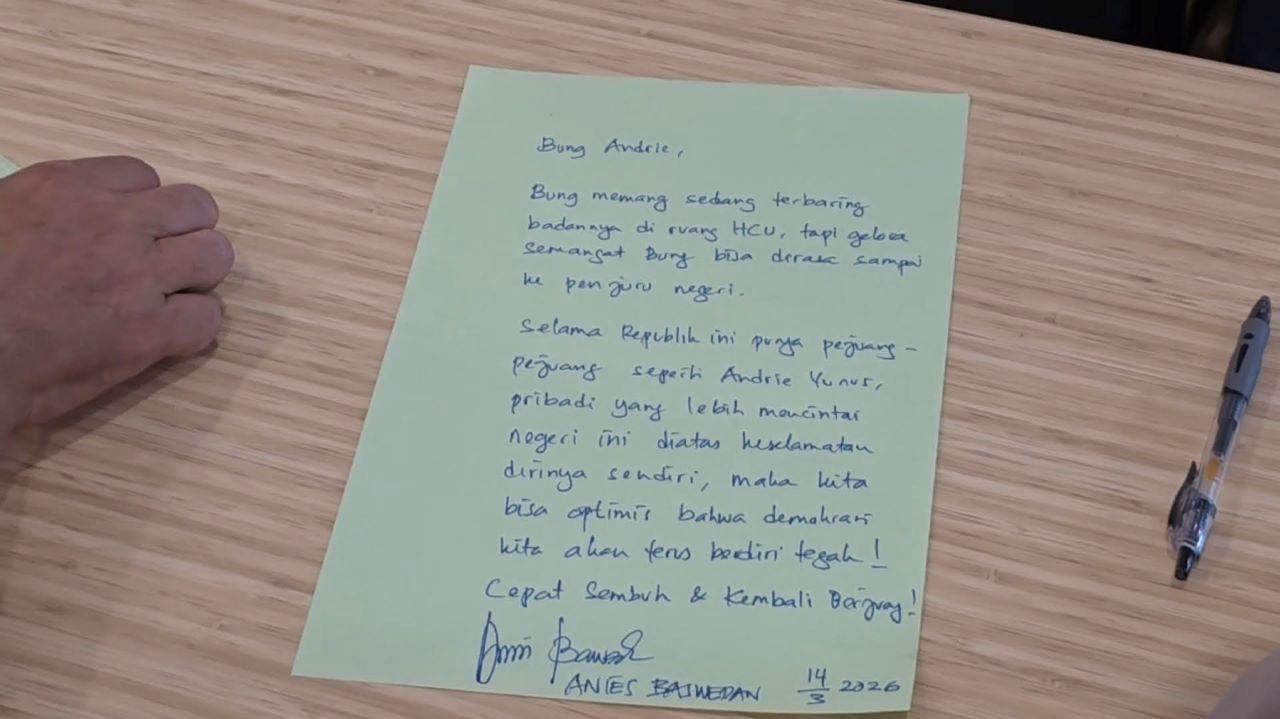 Bung Andrie,
Bung memang sedang terbaring
badannya di ruang HCU, tapi gelora
semangat Bung bisa dirasa sampai
ke penjuru negeri.
Selama Republik ini punya pejuang-
pejuang seperti Andrie Yunus,
pribadi yang lebih mencintai
negeri ini diatas keselamatan
dirinya sendiri, maka kita
bisa optimis bahwa demokrasi
kita akan terus berdiri tegak!
Cepat Sembuh & Kembali Berjuang!
Anies Baswedan
ANIES BASWEDAN 14/3 2026